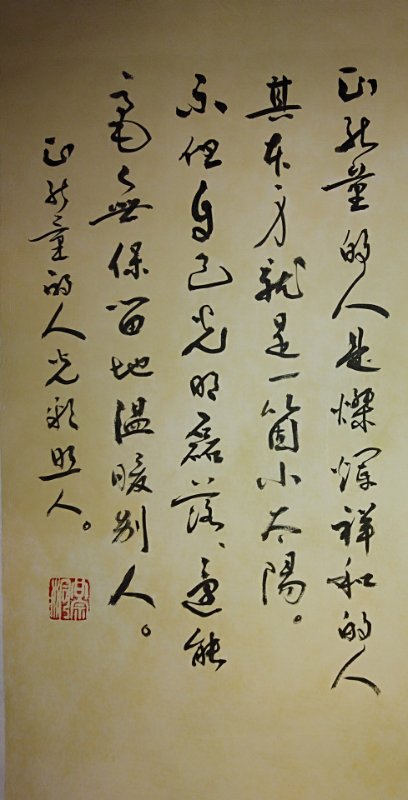 正能量的人是燦爛祥和的人
其本身就是一箇小太陽。
不但自己光明磊落、還能
毫無保留地溫暖別人。
正能量的人光彩照人。